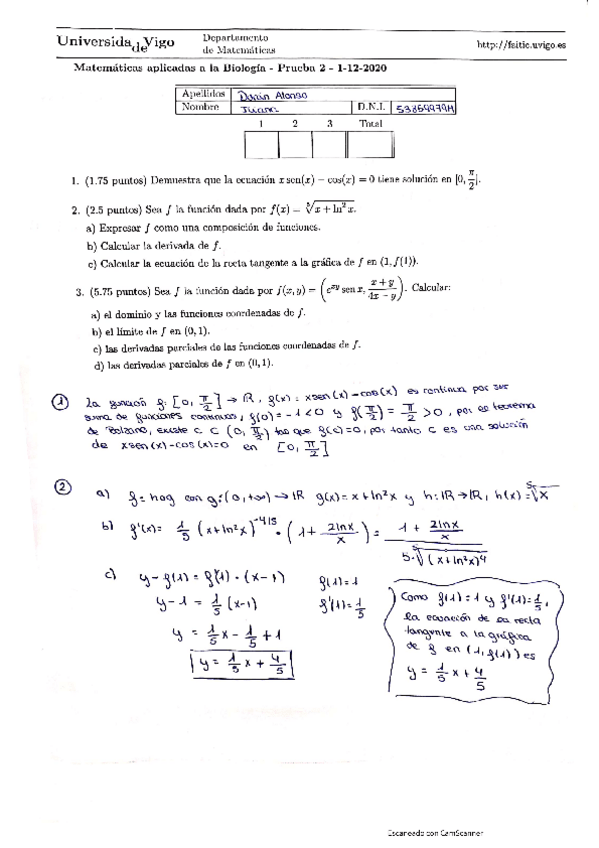 Universidade Vigo
Departamento
de Matemáticas
http://faitic.uvigo.es
Matemáticas aplicadas a la Biología - Prueba 2 - 1-12-2020
Apellidos Alonso
Nombre D.N.I.
1 2 3 Total
1. (1.75 puntos) Demuestra que la ecuación x sen(x) − cos(x) = 0 tiene solución en [0, π/2].
2. (2.5 puntos) Sea f la función dada por f(x) = ⁵√(x + ln² x).
a) Expresar f como una composición de funciones.
b) Calcular la derivada de f.
c) Calcular la ecuación de la recta tangente a la gráfica de f en (1, f(1)).
3. (5.75 puntos) Sea f la función dada por f(x, y) = (e^xy sen x, (x + y)/(4x − y)). Calcular:
a) el dominio y las funciones coordenadas de f.
b) el límite de f en (0, 1).
c) las derivadas parciales de las funciones coordenadas de f.
d) las derivadas parciales de f en (0, 1).
① La función f: [0, π/2] → ℝ, f(x) = xsen(x) − cos(x) es continua por ser
suma de funciones continuas, f(0) = −1 < 0 y f(π/2) = π/2 > 0, por el teorema
de Bolzano, existe c ⊂ (0, π/2) tal que f(c) = 0, por tanto c es una solución
de xsen(x) − cos(x) = 0 en [0, π/2]
② a) f = hog con g: (0, +∞) → ℝ g(x) = x + ln²x y h: ℝ → ℝ, h(x) = ⁵√x
b) f'(x) = 1/5 (x + ln²x)^−4/5 · (1 + 2lnx/x) = (1 + 2lnx/x) / (5·⁵√(x + ln²x)⁴)
c) y − f(1) = f'(1) · (x − 1) f(1) = 1
y − 1 = 1/5 (x − 1) f'(1) = 1/5
y = 1/5 x − 1/5 + 1
y = 1/5 x + 4/5
Como f(1) = 1 y f'(1) = 1/5,
la ecuación de la recta
tangente a la gráfica
de f en (1, f(1)) es
y = 1/5 x + 4/5
Escaneado con CamScanner